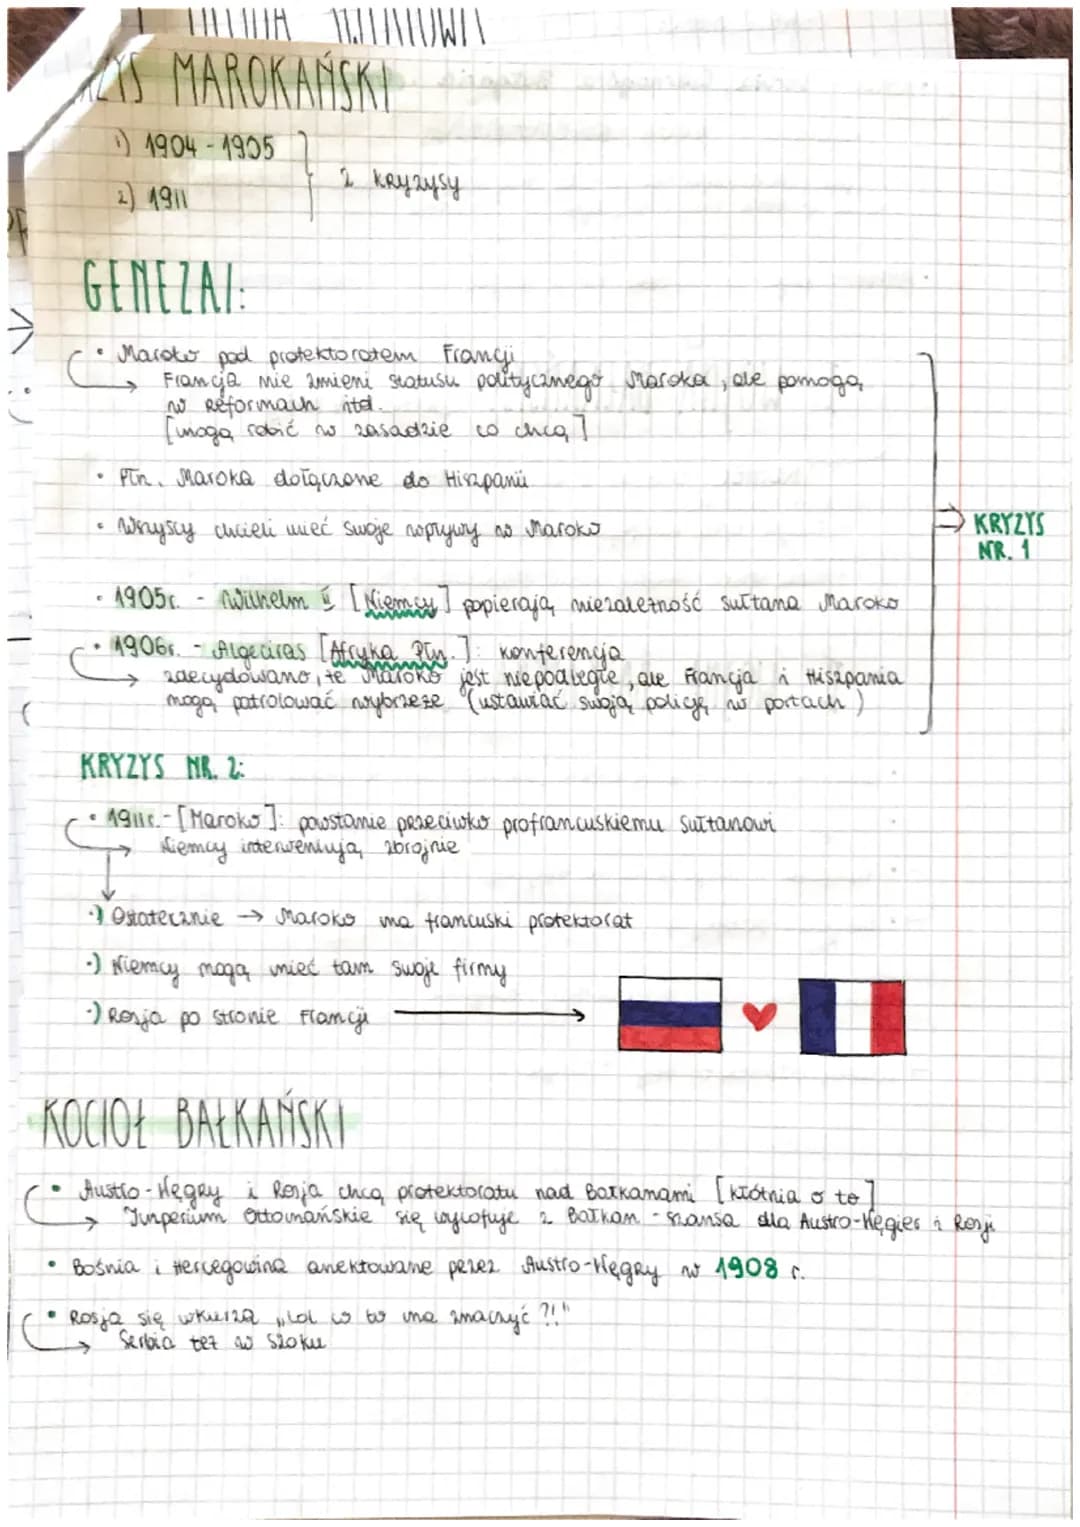 MAROKAŃSKI
1) 1904-1905
2) 1911
2 kryzysy
GENEZA I:
• Maroko pod protektoratem Francji
→ Francja nie zmieni statusu politycznego Maroka, ale pomogą
w reformach itd.
[mogą robić w zasadzie co chcą]
• Płn. Maroka dołączone do Hiszpanii
• Wszyscy chcieli mieć swoje wpływy w Maroko
⇒ KRYZYS
NR. 1
• 1905r. - Wilhelm II [Niemcy] popierają niezależność sułtana Maroko
• 1906r. - Algeciras [Afryka Płn.]: konferencja
→ zdecydowano, że Maroko jest niepodległe, ale Francja i Hiszpania
mogą patrolować wybrzeże (ustawiać swoją policję w portach)
KRYZYS NR. 2:
• 1911r. - [Maroko]: powstanie przeciwko profrancuskiemu sułtanowi
→ Niemcy interweniują zbrojnie
·) Ostatecznie → Maroko ma francuski protektorat
·) Niemcy mogą mieć tam swoje firmy
·) Rosja po stronie Francji →
KOCIOŁ BAŁKAŃSKI
• Austro-Węgry i Rosja chcą protektoratu nad Bałkanami [kłótnia o to]
→ Imperium Ottomańskie się wycofuje z Bałkan - szansa dla Austro-Węgier i Rosji
• Bośnia i Hercegowina anektowane przez Austro-Węgry w 1908 r.
• Rosja się wkurza „Lol co to ma znaczyć ?!"
→ Serbia też w szoku